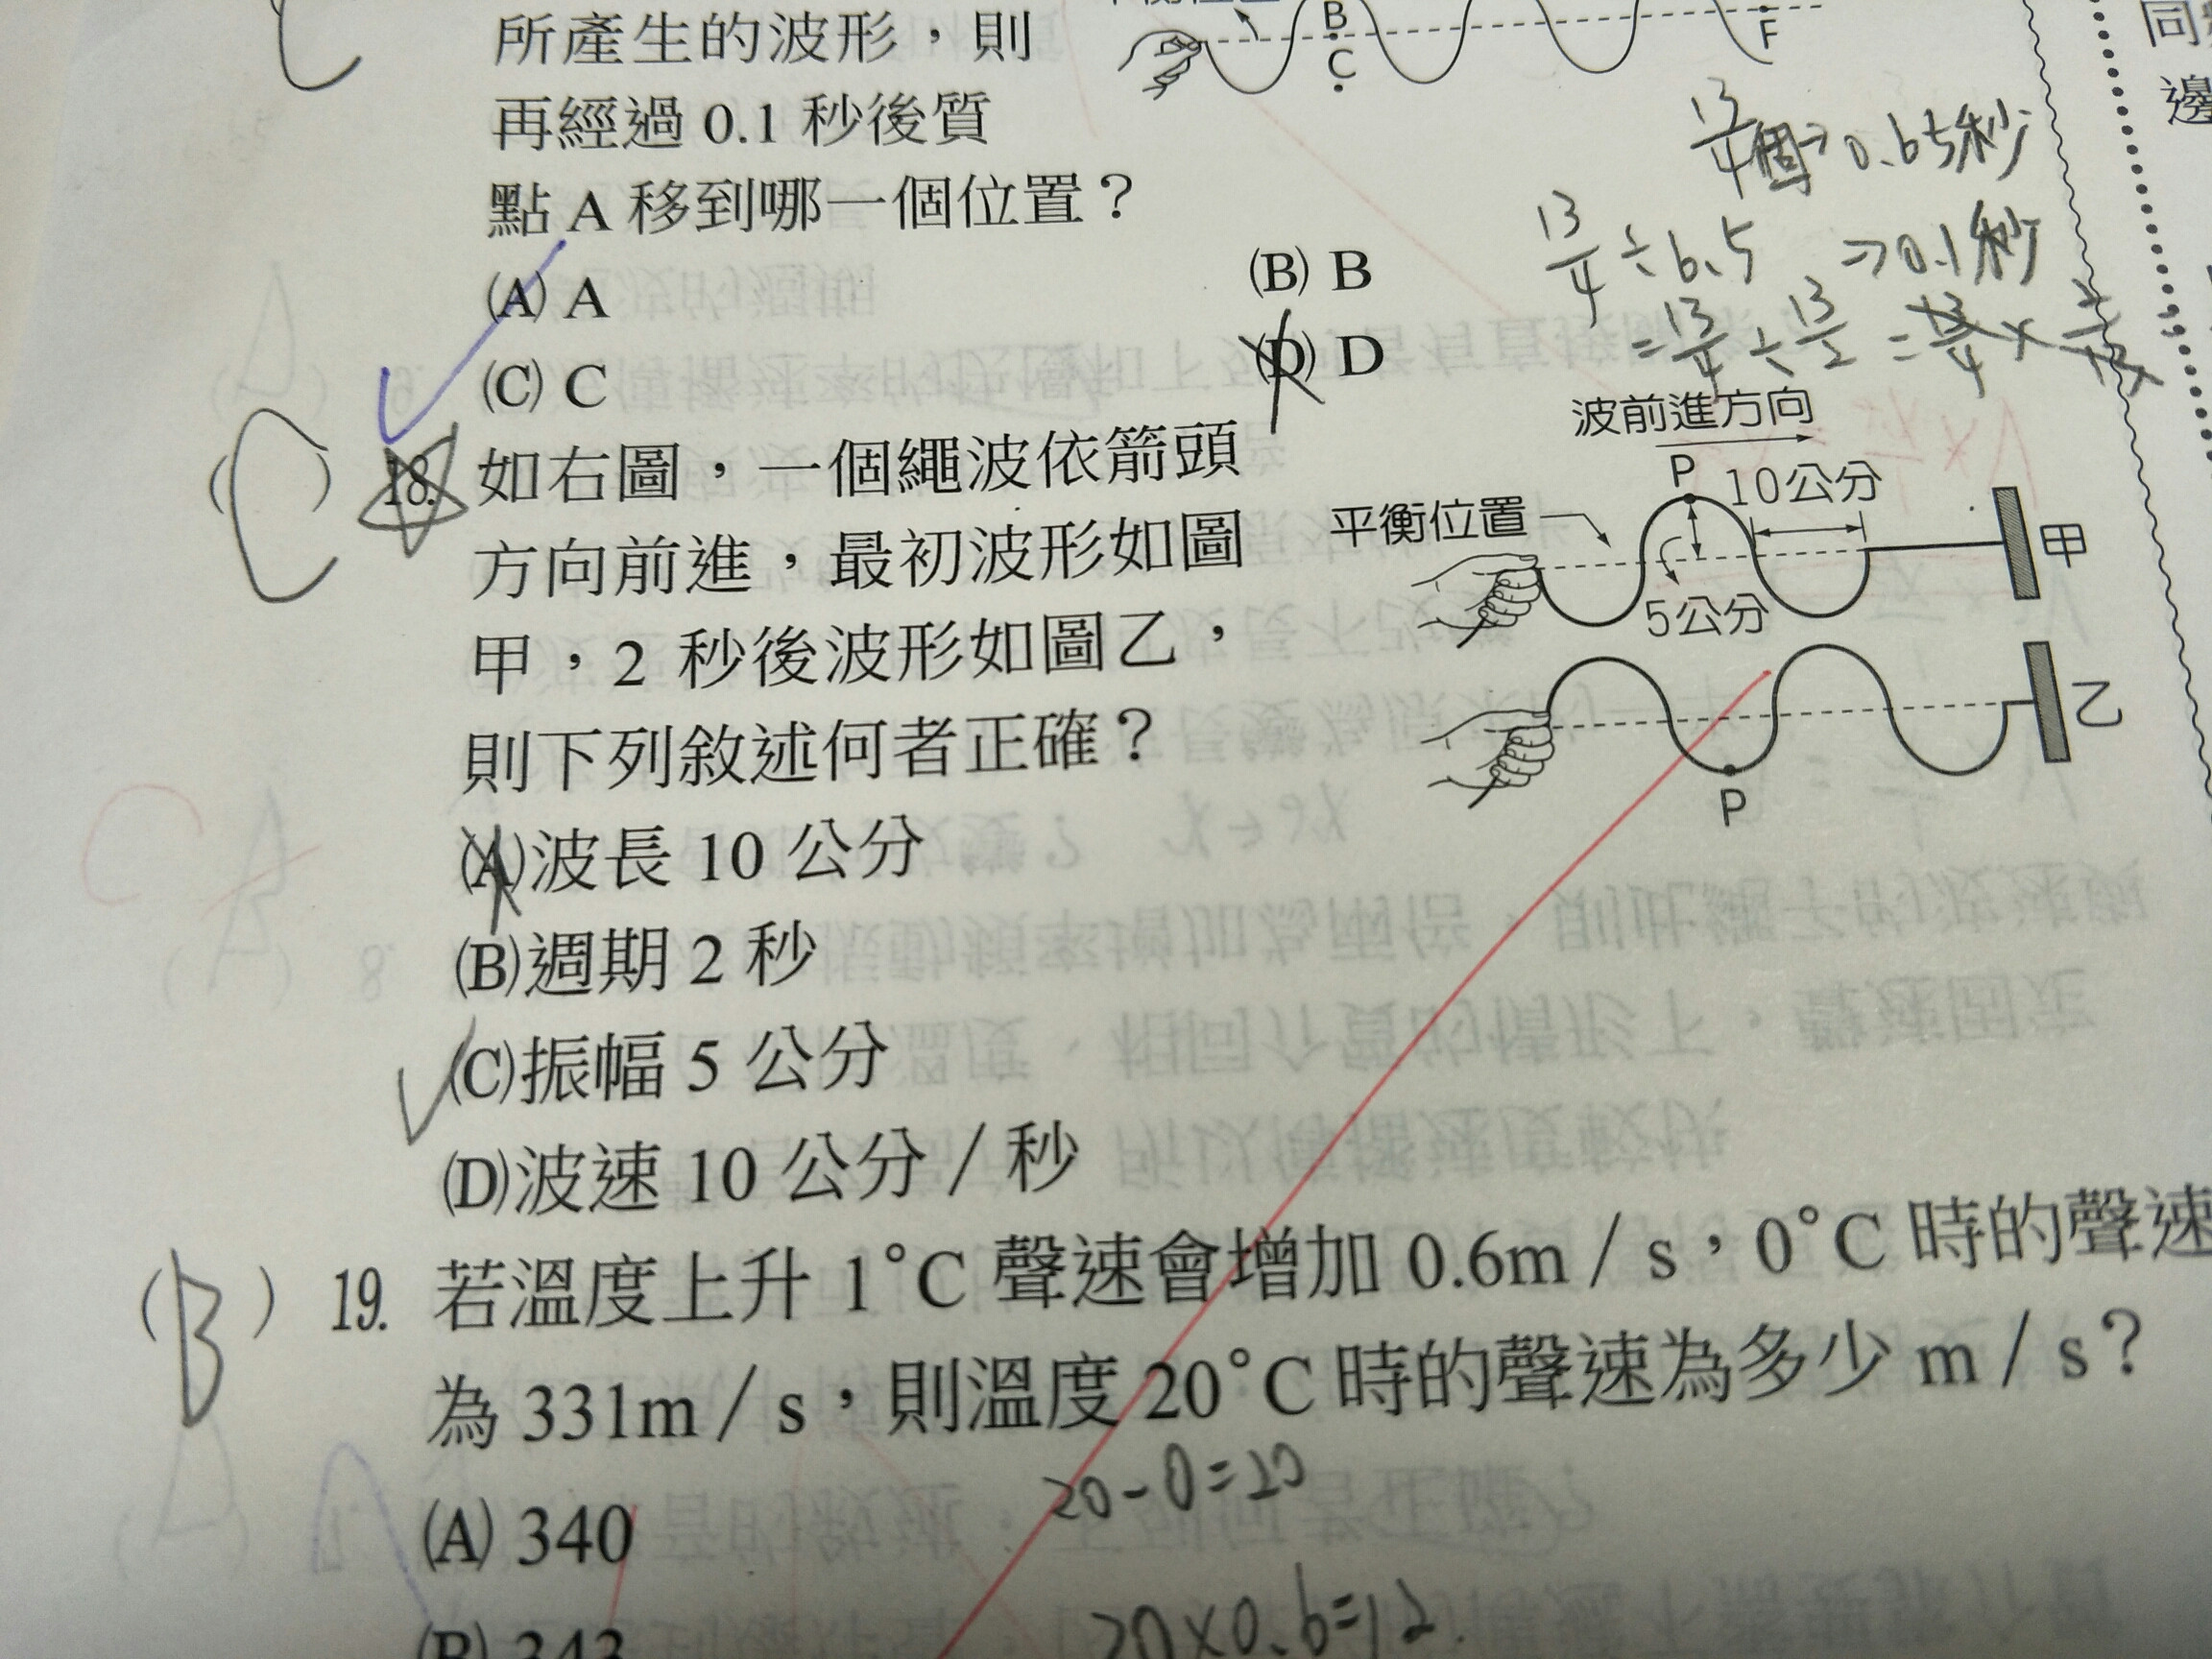 所產生的波形，則
再經過 0.1 秒後質
點 A 移到哪一個位置？
B
C
F
(A) A
(B) B
(C) C
(D) D
13/4個⇒0.65秒
13/4÷6.5 ⇒0.1秒
=13/4÷13/2=13/4×2/13
(C) 18. 如右圖，一個繩波依箭頭
方向前進，最初波形如圖
甲，2 秒後波形如圖乙，
則下列敘述何者正確？
波前進方向
P
10公分
平衡位置
5公分
甲
乙
P
(A)波長 10 公分
(B)週期 2 秒
(C)振幅 5 公分
(D)波速 10 公分／秒
(B) 19. 若溫度上升 1°C 聲速會增加 0.6m／s，0°C 時的聲速
為 331m／s，則溫度 20°C 時的聲速為多少 m／s？
20-0=20
(A) 340
20×0.6=12
(B) 343
同
邊